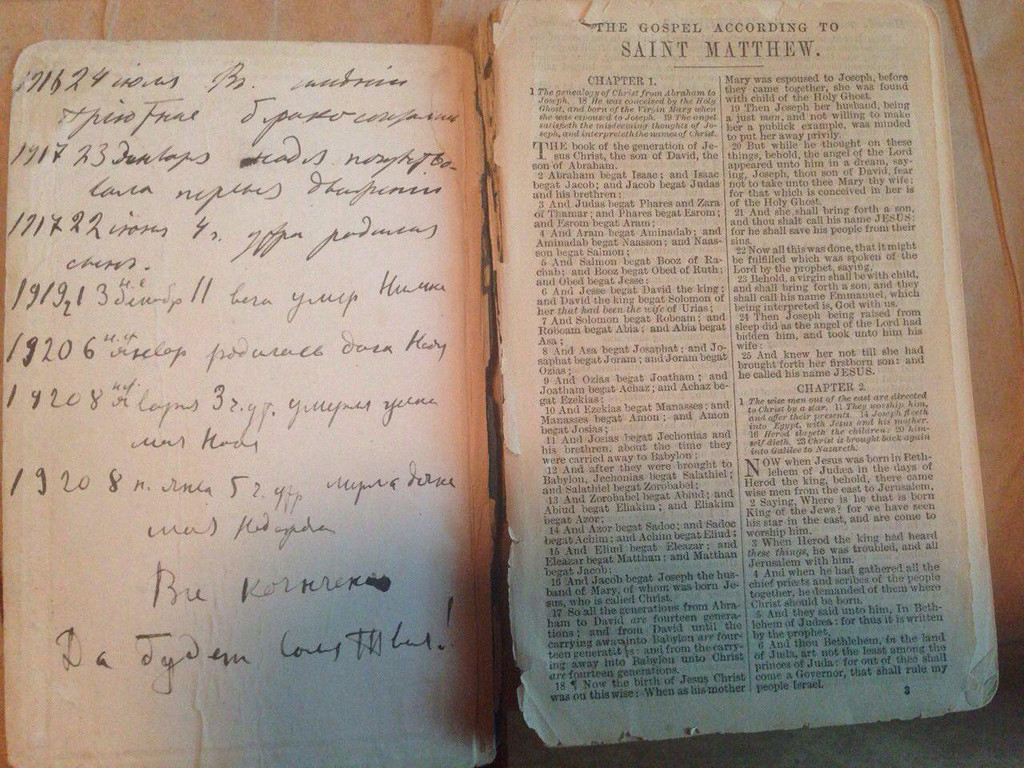 1916 24 июля Въ
приютные бракосочетание
1917 23 Января Надя почувство-
вала первыя движения
1917 22 июня 4 ч. утра родился
сынъ.
1919 13 н.с. Декабр 11 веча умер Нимка
1920 6 н.ст. Январ родилась дочь Надя
1920 8 н.с. Января 3 ч. ут. умерла жена
моя Надя
1920 8 н. Янва 5 ч. утр мерла дочка
моя
Все кончено
Да будет воля Твоя!
THE GOSPEL ACCORDING TO
SAINT MATTHEW.
CHAPTER 1.
1 The genealogy of Christ from Abraham to
Joseph. 18 He was conceived by the Holy
Ghost, and born of the Virgin Mary when
she was espoused to Joseph. 19 The angel
satisfieth the misdeeming thoughts of Jo-
seph, and interpreteth the names of Christ.
THE book of the generation of Je-
sus Christ, the son of David, the
son of Abraham.
2 Abraham begat Isaac; and Isaac
begat Jacob; and Jacob begat Judas
and his brethren;
3 And Judas begat Phares and Zara
of Thamar; and Phares begat Esrom;
and Esrom begat Aram;
4 And Aram begat Aminadab; and
Aminadab begat Naasson; and Naas-
son begat Salmon;
5 And Salmon begat Booz of Ra-
chab; and Booz begat Obed of Ruth;
and Obed begat Jesse;
6 And Jesse begat David the king;
and David the king begat Solomon of
her that had been the wife of Urias;
7 And Solomon begat Roboam; and
Roboam begat Abia; and Abia begat
Asa;
8 And Asa begat Josaphat; and Jo-
saphat begat Joram; and Joram begat
Ozias;
9 And Ozias begat Joatham; and
Joatham begat Achaz; and Achaz be-
gat Ezekias;
10 And Ezekias begat Manasses; and
Manasses begat Amon; and Amon
begat Josias;
11 And Josias begat Jechonias and
his brethren, about the time they
were carried away to Babylon;
12 And after they were brought to
Babylon, Jechonias begat Salathiel;
and Salathiel begat Zorobabel;
13 And Zorobabel begat Abiud; and
Abiud begat Eliakim; and Eliakim
begat Azor;
14 And Azor begat Sadoc; and Sadoc
begat Achim; and Achim begat Eliud;
15 And Eliud begat Eleazar; and
Eleazar begat Matthan; and Matthan
begat Jacob;
16 And Jacob begat Joseph the hus-
band of Mary, of whom was born Je-
sus, who is called Christ.
17 So all the generations from Abra-
ham to David are fourteen genera-
tions; and from David until the
carrying away into Babylon are four-
teen generations; and from the carry-
ing away into Babylon unto Christ
are fourteen generations.
18 ¶ Now the birth of Jesus Christ
was on this wise: When as his mother
Mary was espoused to Joseph, before
they came together, she was found
with child of the Holy Ghost.
19 Then Joseph her husband, being
a just man, and not willing to make
her a publick example, was minded
to put her away privily.
20 But while he thought on these
things, behold, the angel of the Lord
appeared unto him in a dream, say-
ing, Joseph, thou son of David, fear
not to take unto thee Mary thy wife:
for that which is conceived in her is
of the Holy Ghost.
21 And she shall bring forth a son,
and thou shalt call his name JESUS:
for he shall save his people from their
sins.
22 Now all this was done, that it might
be fulfilled which was spoken of the
Lord by the prophet, saying,
23 Behold, a virgin shall be with child,
and shall bring forth a son, and they
shall call his name Emmanuel, which
being interpreted is, God with us.
24 Then Joseph being raised from
sleep did as the angel of the Lord had
bidden him, and took unto him his
wife:
25 And knew her not till she had
brought forth her firstborn son: and
he called his name JESUS.
CHAPTER 2.
1 The wise men out of the east are directed
to Christ by a star. 11 They worship him,
and offer their presents. 14 Joseph fleeth
into Egypt, with Jesus and his mother.
16 Herod slayeth the children: 20 him-
self dieth. 23 Christ is brought back again
into Galilee to Nazareth.
NOW when Jesus was born in Beth-
lehem of Judæa in the days of
Herod the king, behold, there came
wise men from the east to Jerusalem,
2 Saying, Where is he that is born
King of the Jews? for we have seen
his star in the east, and are come to
worship him.
3 When Herod the king had heard
these things, he was troubled, and all
Jerusalem with him.
4 And when he had gathered all the
chief priests and scribes of the people
together, he demanded of them where
Christ should be born.
5 And they said unto him, In Beth-
lehem of Judæa: for thus it is written
by the prophet,
6 And thou Bethlehem, in the land
of Juda, art not the least among the
princes of Juda: for out of thee shall
come a Governor, that shall rule my
people Israel.
3